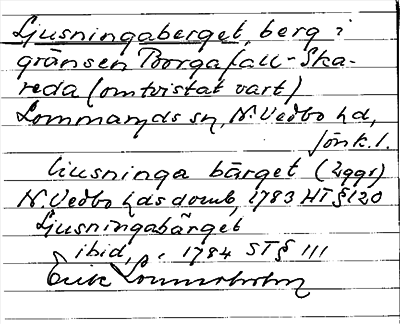 Ljusningaberget, berg i
gränsen Borgafall-Ska-
reda (omtvistat vart)
Lommaryds sn, N. Vedbo hd,
Jönk. l.
liusninga bärget (2 ggr)
N. Vedbo hds domb, 1783 HT § 120
Ljusningabärget
ibid, 1784 ST § 111
Erik